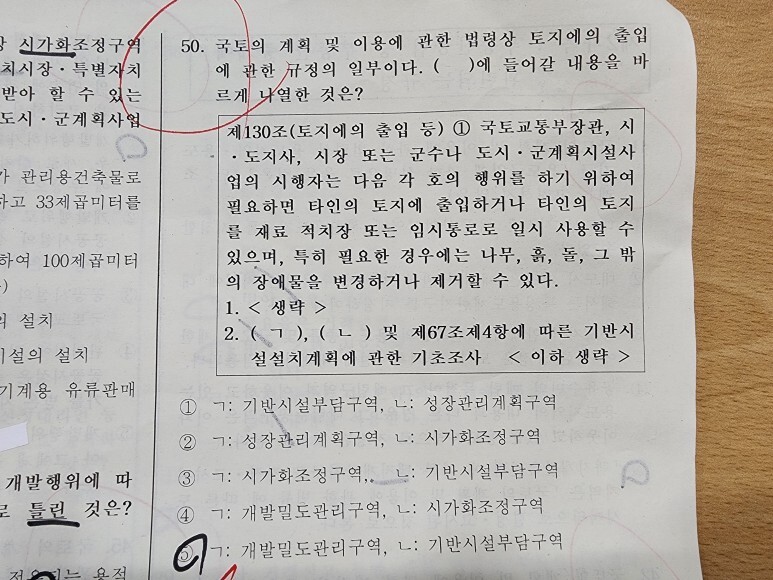 상 시가화조정구역
치시장·특별자치
받아 할 수 있는
도시·군계획사업
가 관리용건축물로
하고 33제곱미터를
하여 100제곱미터
)
의 설치
시설의 설치
기계용 유류판매
개발행위에 따
로 틀린 것은?
50. 국토의 계획 및 이용에 관한 법령상 토지에의 출입
에 관한 규정의 일부이다. (    )에 들어갈 내용을 바
르게 나열한 것은?
제130조(토지에의 출입 등) ① 국토교통부장관, 시
·도지사, 시장 또는 군수나 도시·군계획시설사
업의 시행자는 다음 각 호의 행위를 하기 위하여
필요하면 타인의 토지에 출입하거나 타인의 토지
를 재료 적치장 또는 임시통로로 일시 사용할 수
있으며, 특히 필요한 경우에는 나무, 흙, 돌, 그 밖
의 장애물을 변경하거나 제거할 수 있다.
1. < 생략 >
2. ( ㄱ ), ( ㄴ ) 및 제67조제4항에 따른 기반시
설설치계획에 관한 기초조사 < 이하 생략 >
① ㄱ: 기반시설부담구역, ㄴ: 성장관리계획구역
② ㄱ: 성장관리계획구역, ㄴ: 시가화조정구역
③ ㄱ: 시가화조정구역, ㄴ: 기반시설부담구역
④ ㄱ: 개발밀도관리구역, ㄴ: 시가화조정구역
⑤ ㄱ: 개발밀도관리구역, ㄴ: 기반시설부담구역